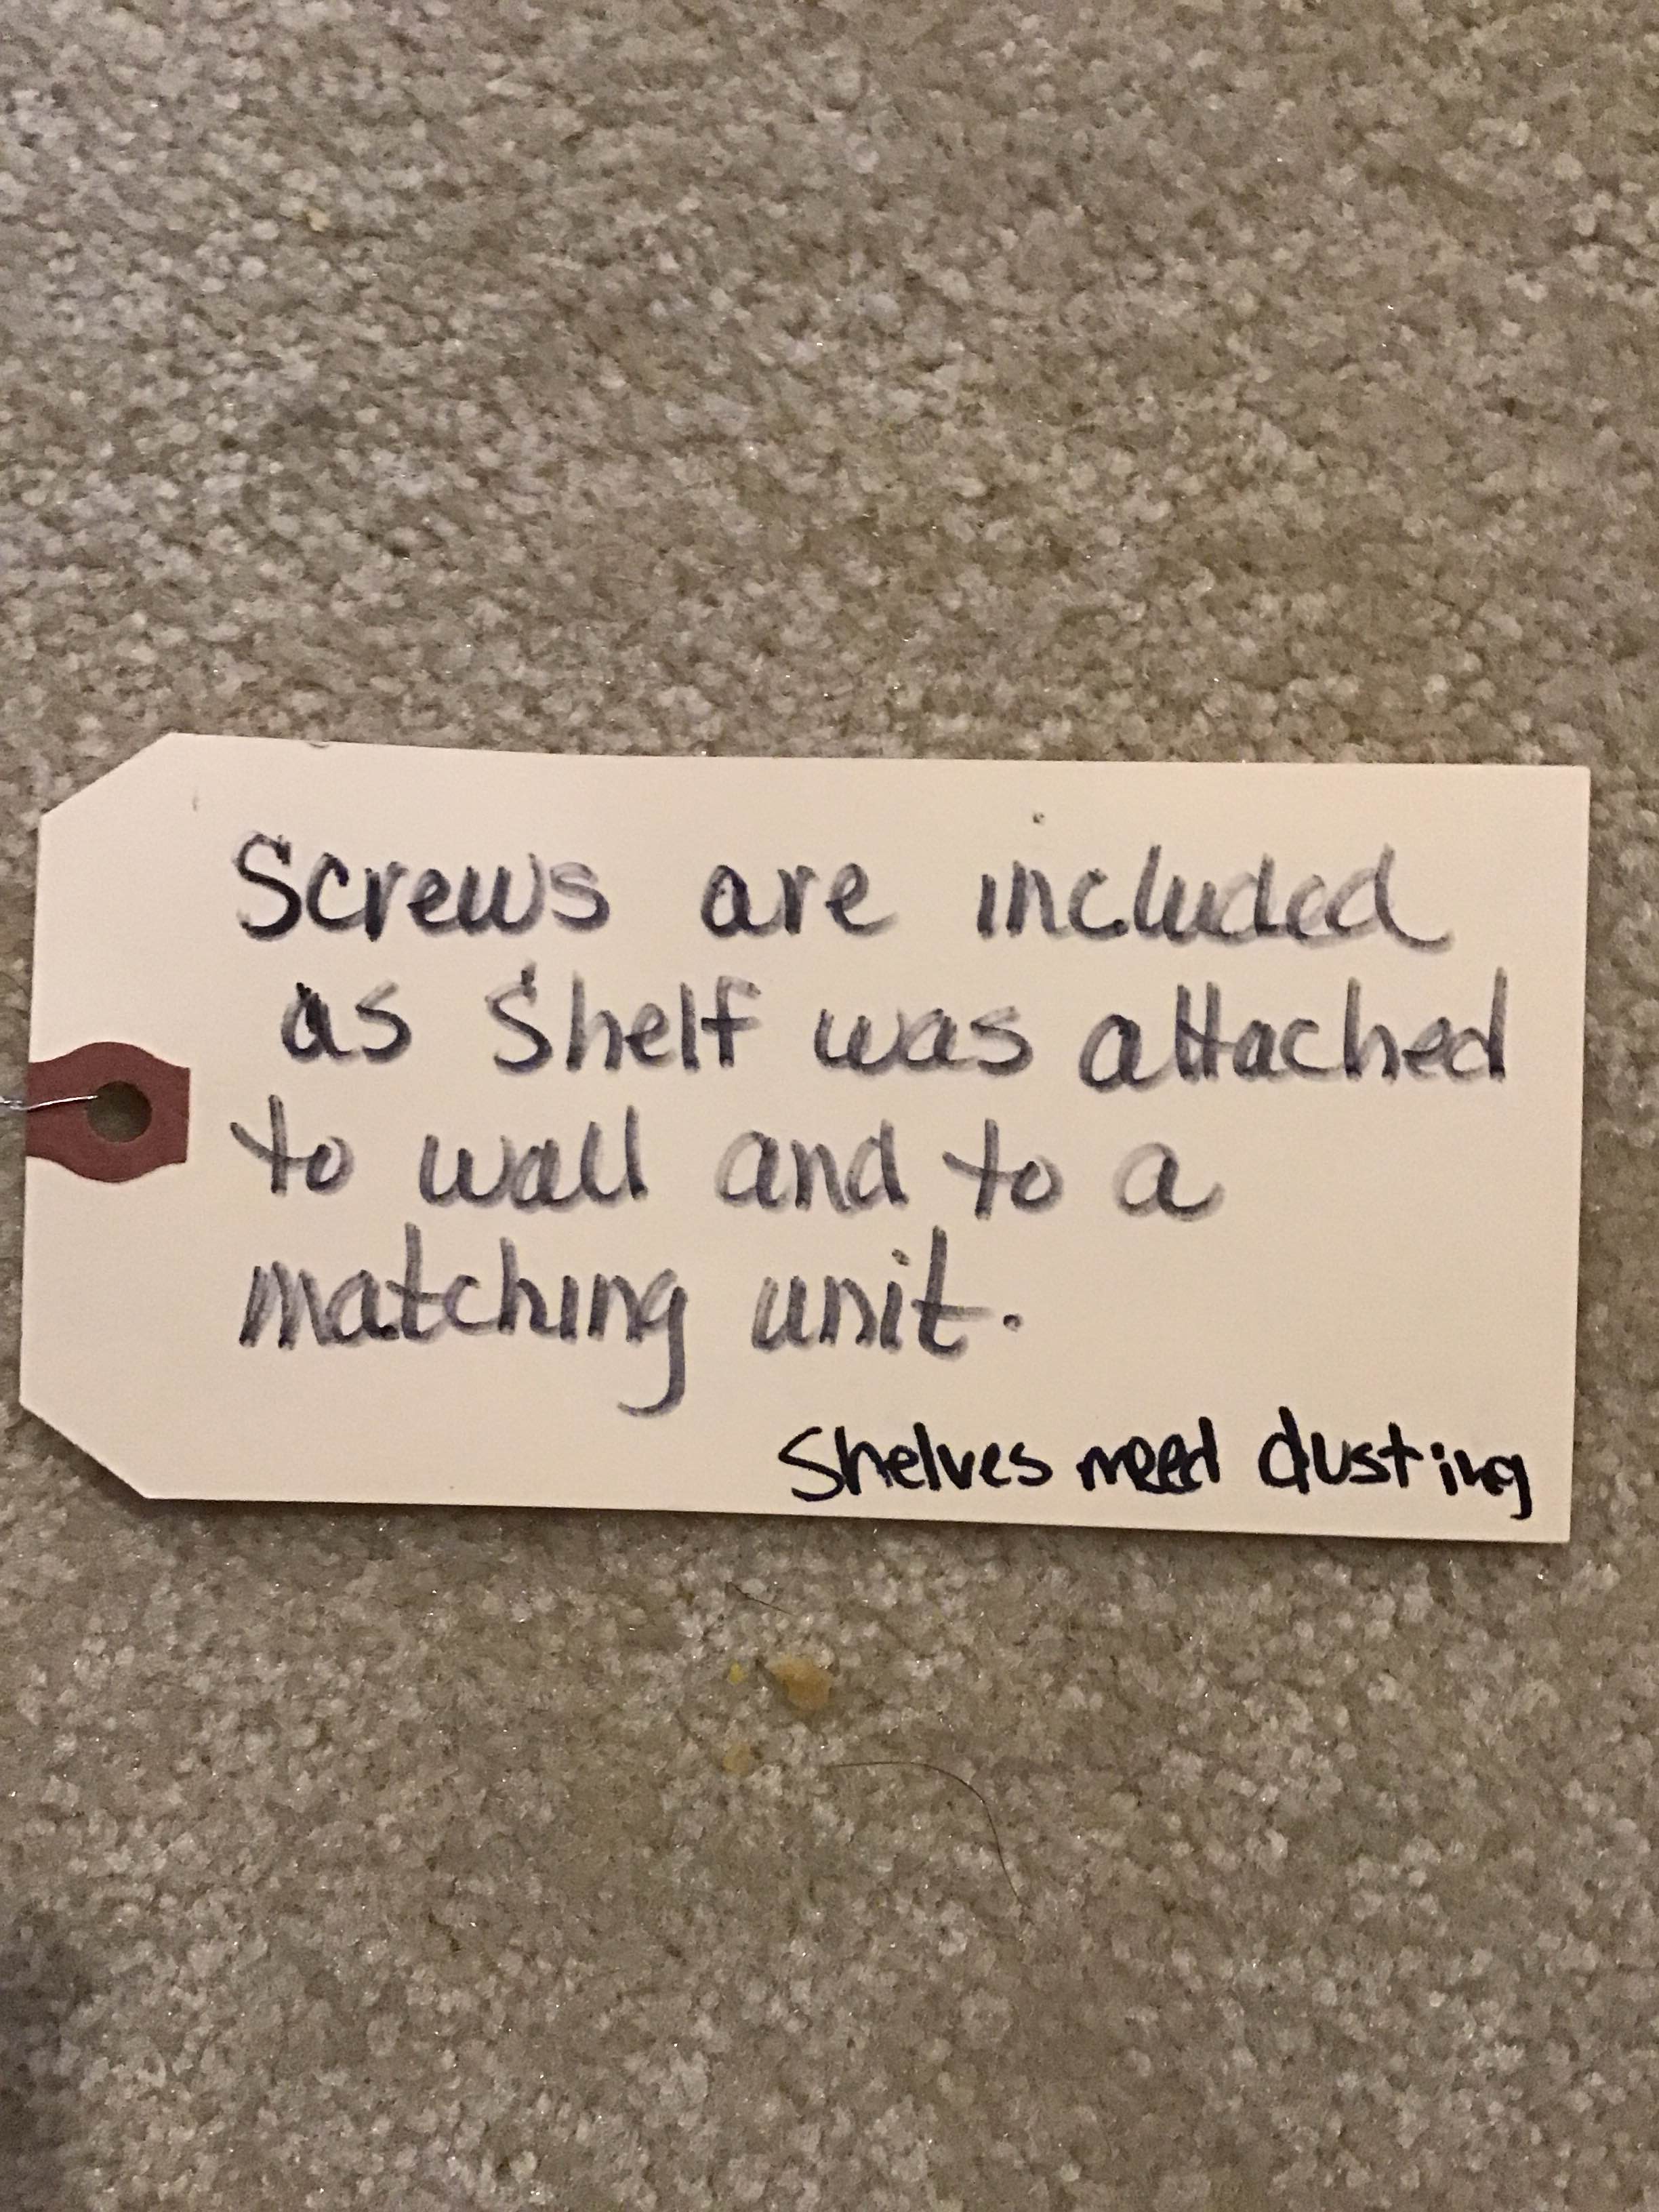 Screws are included
as Shelf was attached
to wall and to a
matching unit.
Shelves need dusting